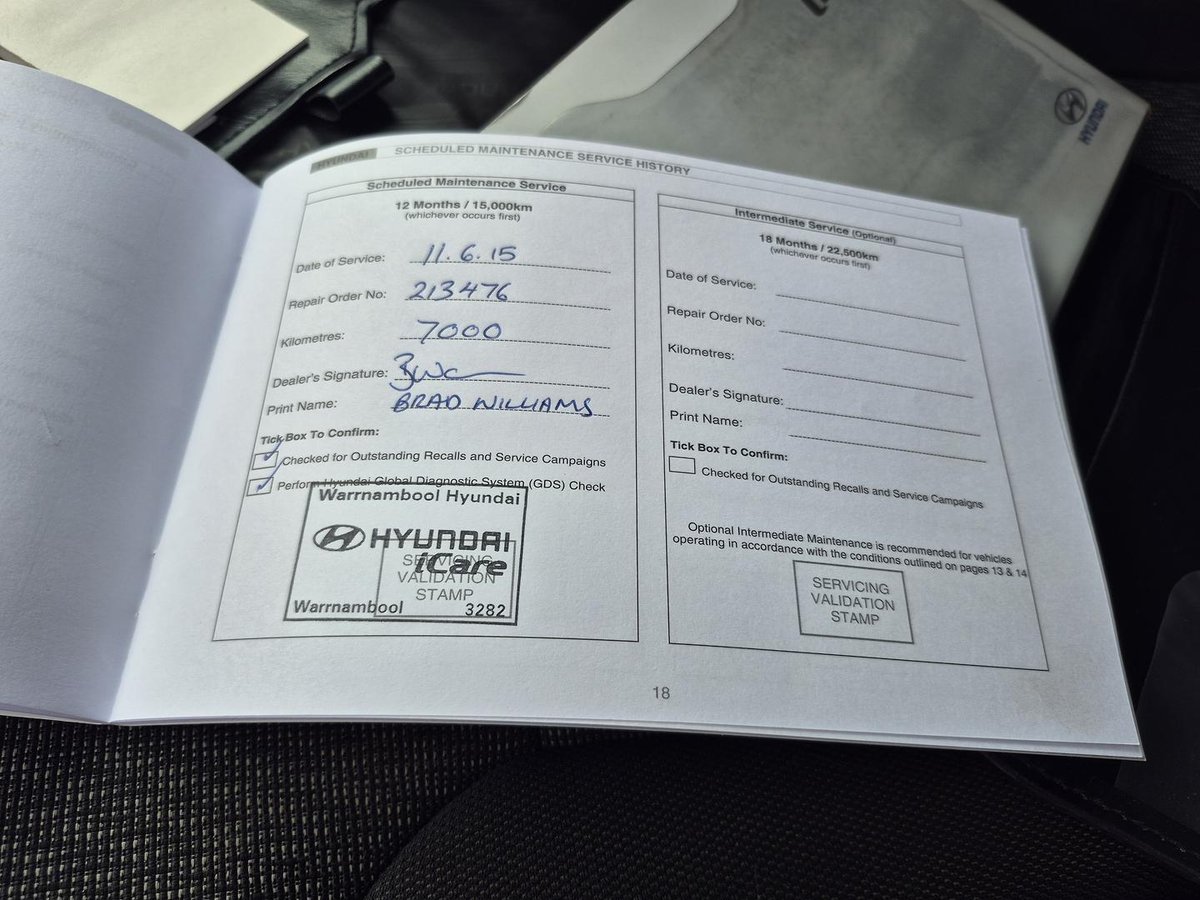 HYUNDAI SCHEDULED MAINTENANCE SERVICE HISTORY
Scheduled Maintenance Service
12 Months / 15,000km
(whichever occurs first)
Date of Service: 11.6.15
Repair Order No: 213476
Kilometres: 7000
Dealer's Signature:
Print Name: BRAD WILLIAMS
Tick Box To Confirm:
Checked for Outstanding Recalls and Service Campaigns
Perform Hyundai Global Diagnostic System (GDS) Check
Warrnambool Hyundai
HYUNDAI
iCare
SERVICING
VALIDATION
STAMP
Warrnambool 3282
Intermediate Service (Optional)
18 Months / 22,500km
(whichever occurs first)
Date of Service:
Repair Order No:
Kilometres:
Dealer's Signature:
Print Name:
Tick Box To Confirm:
Checked for Outstanding Recalls and Service Campaigns
Optional Intermediate Maintenance is recommended for vehicles
operating in accordance with the conditions outlined on pages 13 & 14
SERVICING
VALIDATION
STAMP
18
HYUNDAI